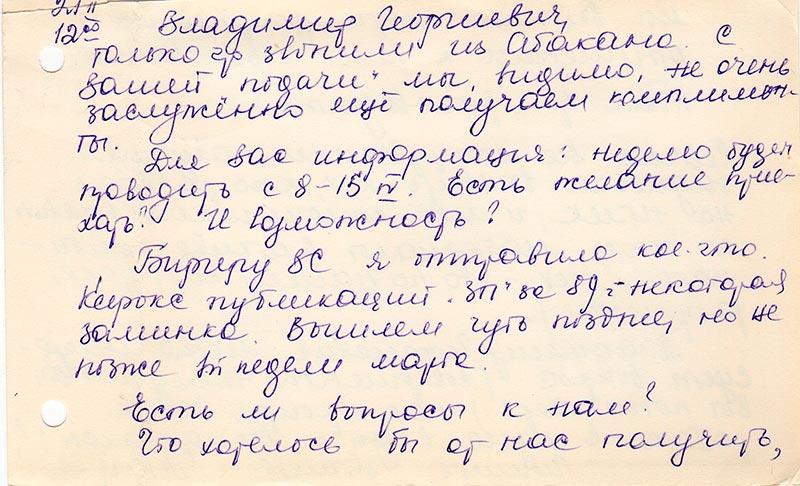 12⁰⁰ Владимир Георгиевич,
только звонили из Абакана. С
вашей подачи" мы, видимо, не очень
заслуженно ещё получаем комплимен-
ты.
Для вас информация: неделю будем
проводить с 8-15 IV. Есть желание прие-
хать? И возможность?
Бюргеру ВС я отправила кое-что.
Ксерокс публикаций "ЗП" за 89 г - некоторая
заминка. Вышлем чуть позднее, но не
позже недели марта.
Есть ли вопросы к нам?
Что хотелось бы от нас получить,